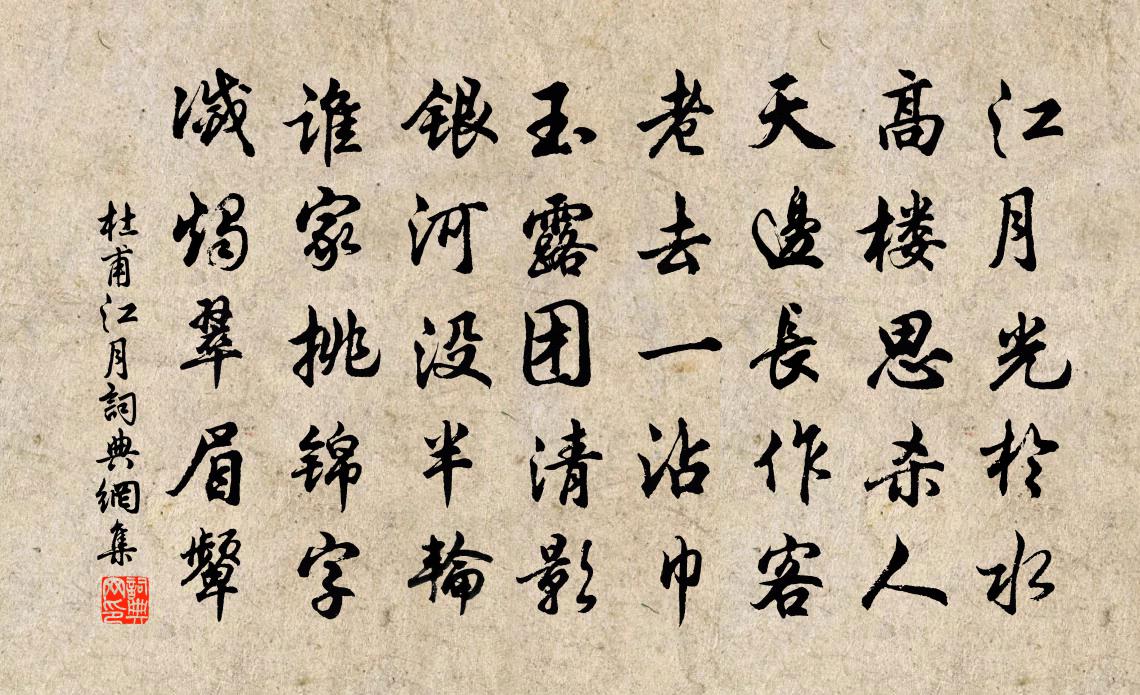 江月光於水
高楼思杀人
天邊長作客
老去一沾巾
玉露团清影
銀河没半輪
誰家挑锦字
滅燭翠眉顰
杜甫江月詞典網集
詞典网印